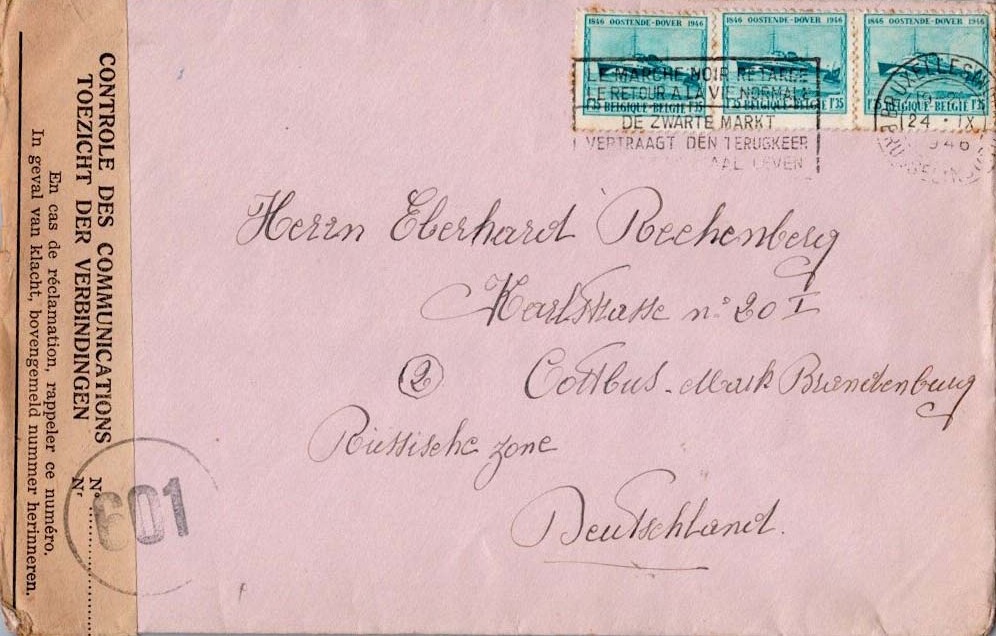 CONTROLE DES COMMUNICATIONS Nº
TOEZICHT DER VERBINDINGEN Nr
En cas de réclamation, rappeler ce numéro.
In geval van klacht, bovengemeld nummer herinneren.
601
1846 OOSTENDE-DOVER 1946
1F35 BELGIQUE-BELGIE 1F35
1846 OOSTENDE-DOVER 1946
1F35 BELGIQUE-BELGIE 1F35
1846 OOSTENDE-DOVER 1946
1F35 BELGIQUE-BELGIE 1F35
LE MARCHE NOIR RETARDE
LE RETOUR A LA VIE NORMALE
DE ZWARTE MARKT
VERTRAAGT DEN TERUGKEER
LEVEN
BRUXELLES
24 · IX
1946
BRUSSEL
Herrn Eberhard Rechenberg
Karlstrasse nº 20 I
② Cottbus - Mark Brandenburg
Russische zone
Deutschland.